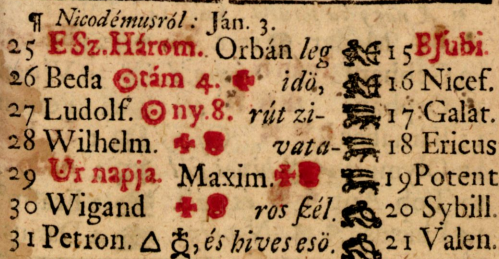 ¶ Nicodémusról: Ján. 3.
25 E Sz. Három. Orbán leg 15 B Jubi.
26 Beda ☉ tám 4. idö, 16 Nicef.
27 Ludolf. ☉ ny. 8. rút zi- 17 Galat.
28 Wilhelm. vata- 18 Ericus
29 Ur napja. Maxim. 19 Potent
30 Wigand ros ſzél. 20 Sybill.
31 Petron. △ ♁, és hives esö. 21 Valen.